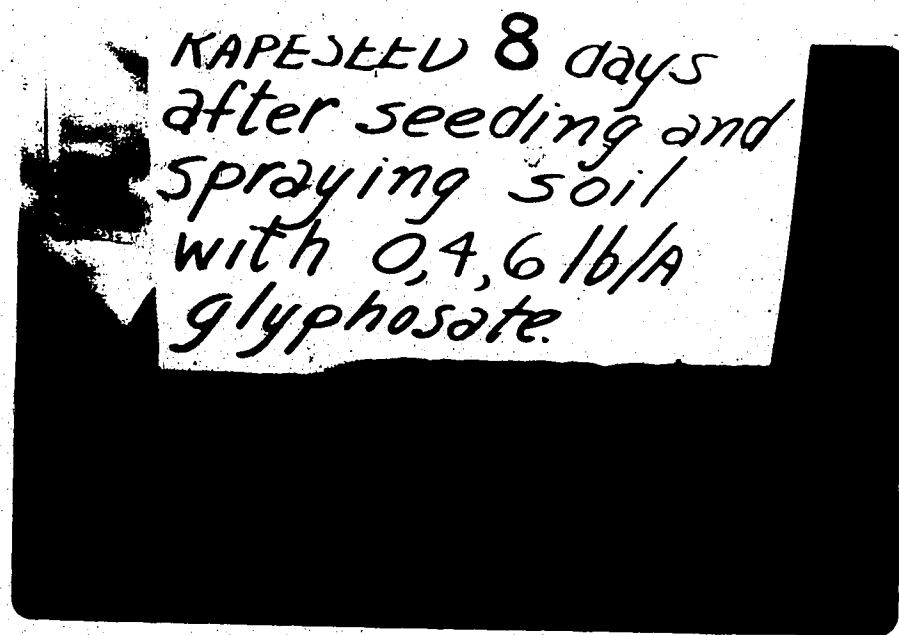 RAPESEED 8 days
after seeding and
spraying soil
with 0,4,6 lb/A
glyphosate.